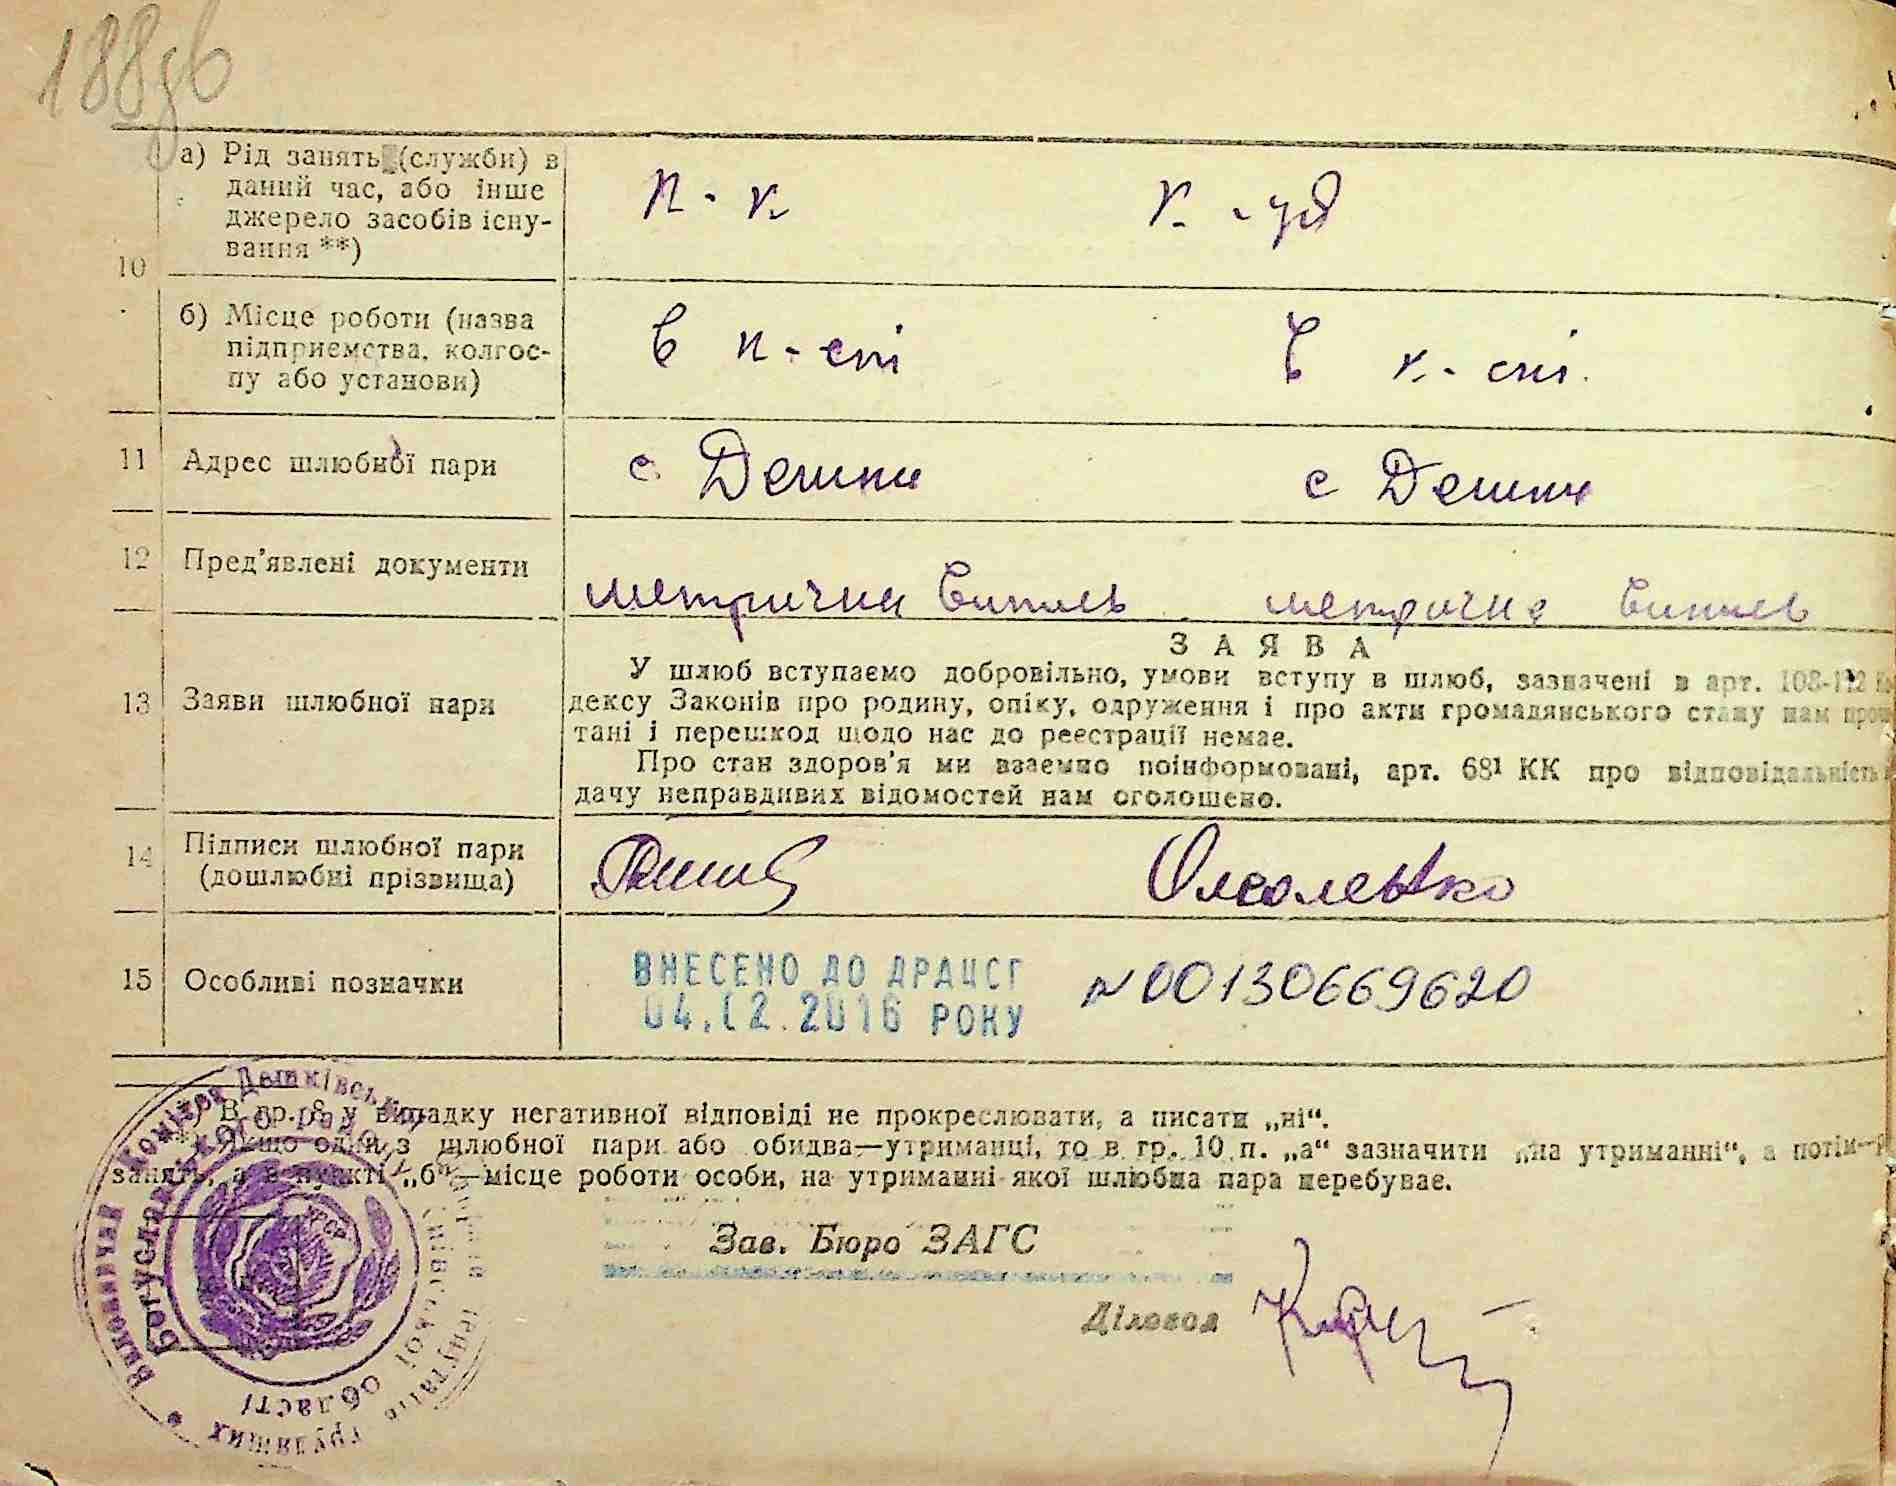 188зв
а) Рід занять (служби) в
даний час, або інше
джерело засобів існу-
вання **)
10
к. - уд
б) Місце роботи (назва
підприємства, колгос-
пу або установи)
в к-спі
в к.-спі.
11 Адрес шлюбної пари
с. Дешки
с Дешки
12 Пред'явлені документи
метрична випись метрична випись
З А Я В А
13 Заяви шлюбної пари
У шлюб вступаємо добровільно, умови вступу в шлюб, зазначені в арт. 108-112 Ко
дексу Законів про родину, опіку, одруження і про акти громадянського стану нам прочи
тані і перешкод щодо нас до реєстрації немає.
Про стан здоров'я ми взаємно поінформовані, арт. 68¹ КК про відповідальність
дачу неправдивих відомостей нам оголошено.
14 Підписи шлюбної пари
(дошлюбні прізвища)
15 Особливі позначки
ВНЕСЕНО ДО ДРАЦСГ
04.12.2016 РОКУ
N00130669620
*) В гр. 8 у випадку негативної відповіді не прокреслювати, а писати „ні“.
**) Якщо один з шлюбної пари або обидва—утриманці, то в гр. 10 п. „а“ зазначити „на утриманні“, а потім—р
занять, а в пункті „б“—місце роботи особи, на утриманні якої шлюбна пара перебуває.
Зав. Бюро ЗАГС
Діловод
Виконавчий Комітет Дешківської
депутатів трудящих
Богуславського району
Київської області
УРСР